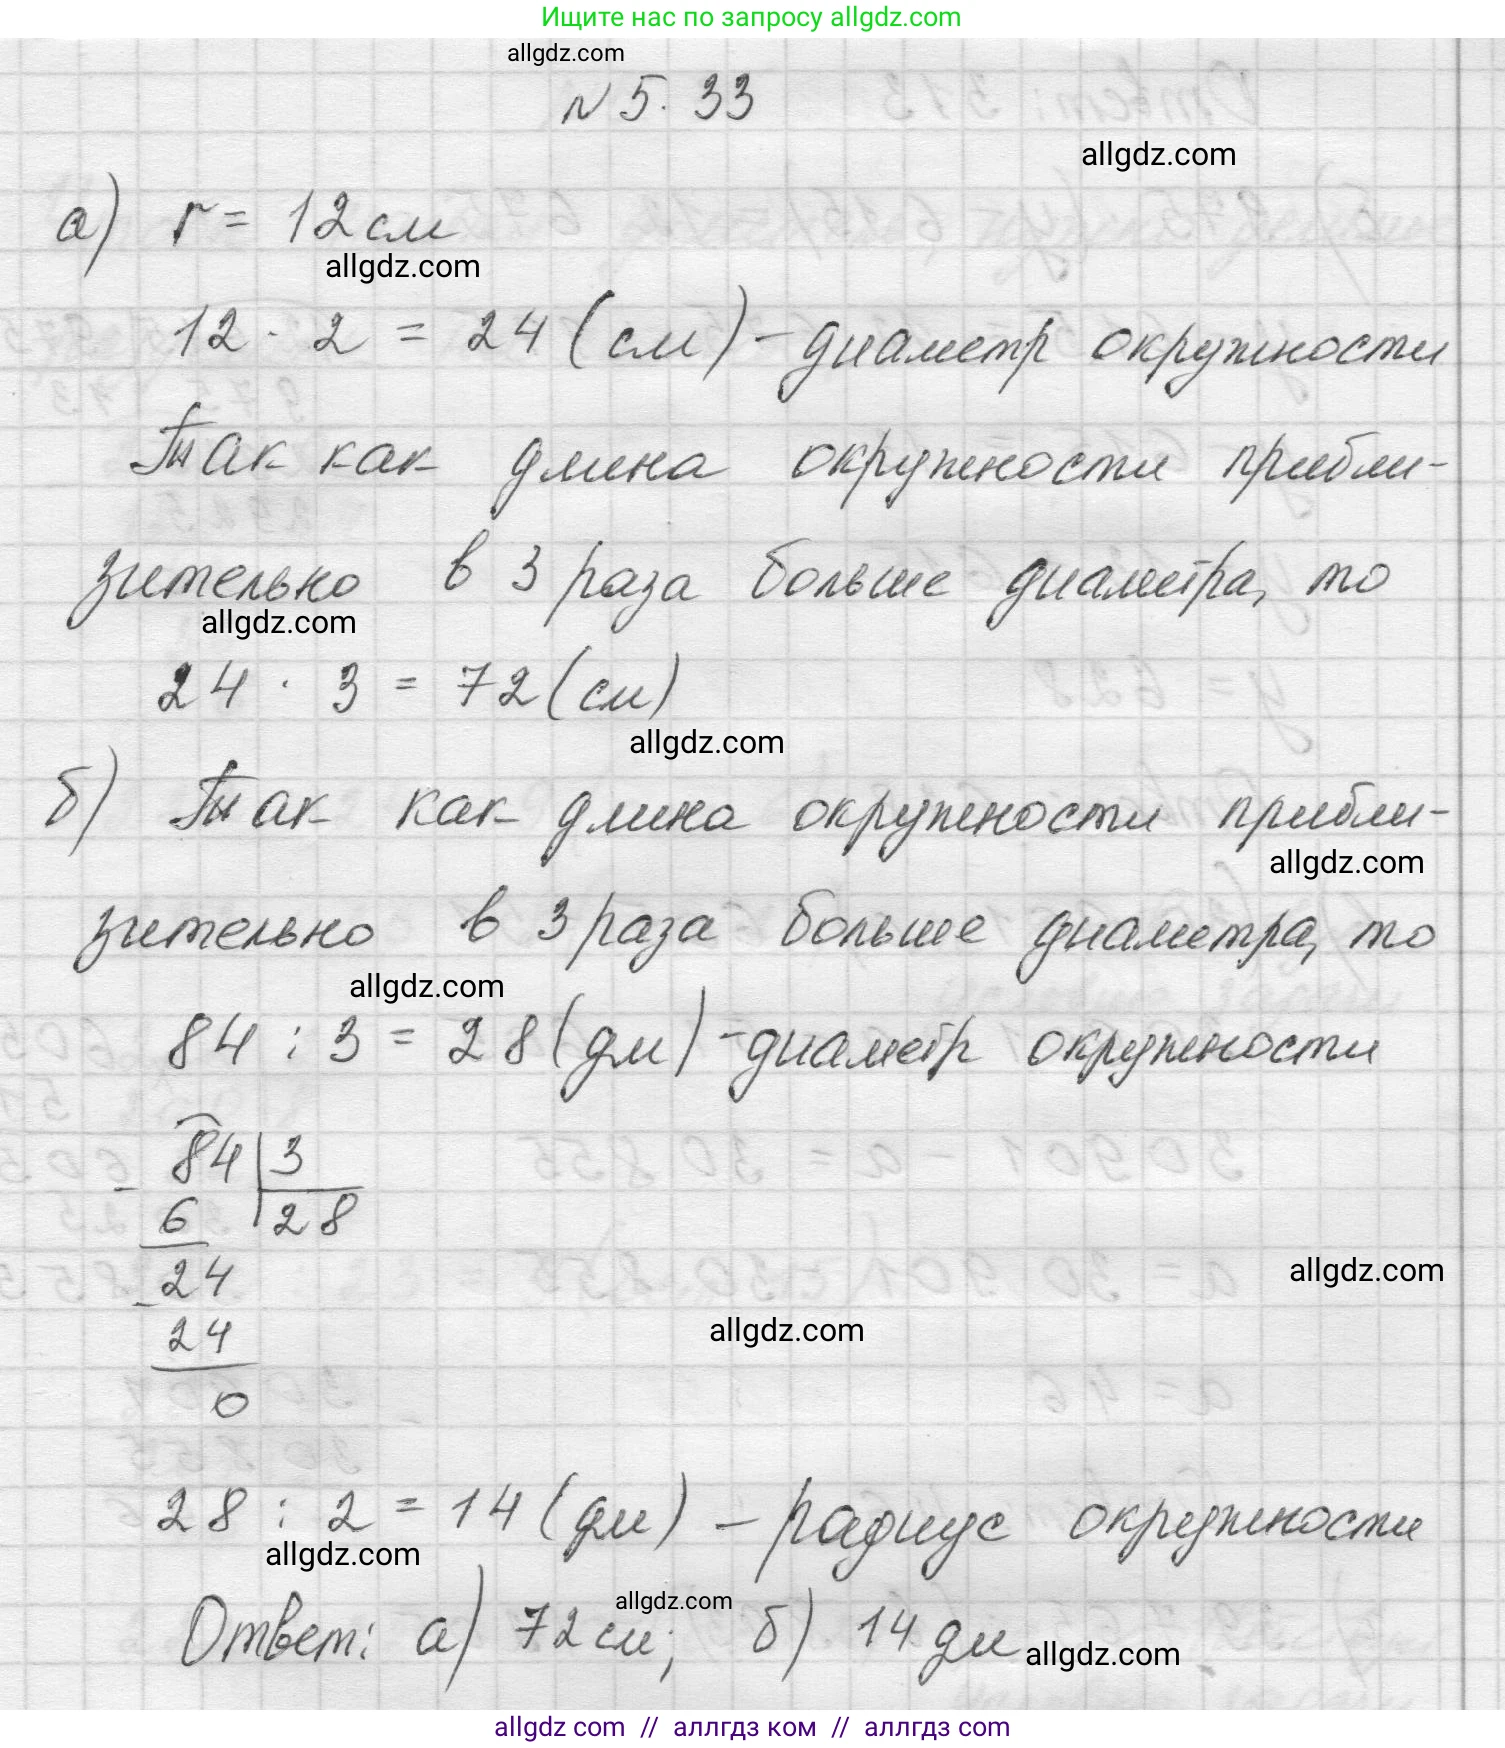 Ищите нас по запросу allgdz.com
allgdz.com
№ 5.33
allgdz.com
а) r = 12 см
allgdz.com
12 · 2 = 24 (см) – диаметр окружности
Так как длина окружности прибли-
зительно в 3 раза больше диаметра, то
allgdz.com
24 · 3 = 72 (см)
allgdz.com
б) Так как длина окружности прибли-
allgdz.com
зительно в 3 раза больше диаметра, то
allgdz.com
84 : 3 = 28 (дм) – диаметр окружности
84 | 3
– 6 | 28
24
allgdz.com
– 24
allgdz.com
0
28 : 2 = 14 (дм) – радиус окружности
allgdz.com
allgdz.com
Ответ: а) 72 см; б) 14 дм
allgdz.com
allgdz com // аллгдз ком // аллгдз com